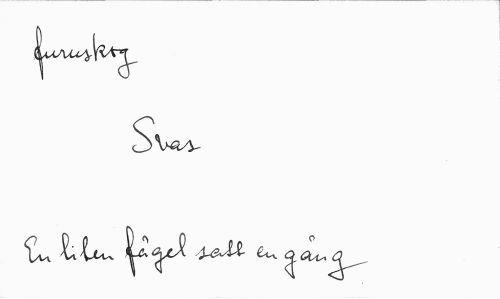 furuskog
Svar
En liten fågel satt en gång